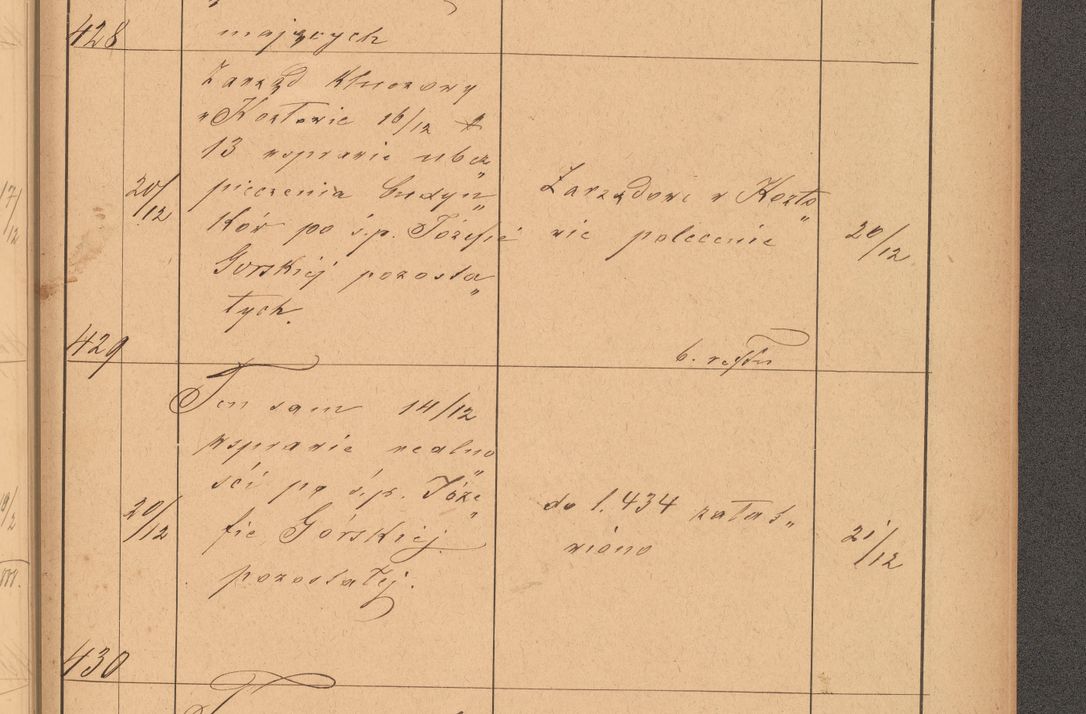 428
mających
Zarząd Kluczowy
w Kozłowie 16/12 £
13 wsprawie ubez„
20/12
pieczenia budyn„
ków po ś.p. Józefie
Gorskiéj pozosta„
łych.
Zarządowi w Kozło„
wie polecenie
20/12
429
b. resztu
Ten sam 14/12
wsprawie realno„
ści po ś.p. Józe„
fie Górskiej
pozostałej.
20/12
do l. 434 załat„
wiono
21/12
430
17/12